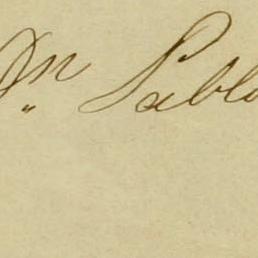 Dn Pablo